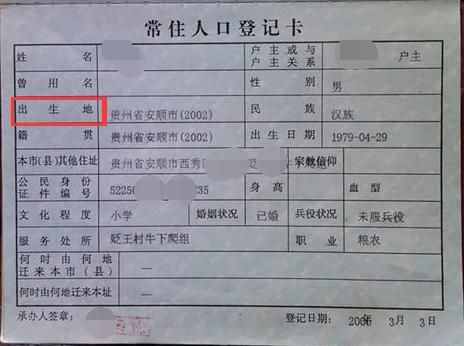 常住人口登记卡
姓 名 户主或与户主关系 户主
曾用名 性 别 男
出 生 地 贵州省安顺市(2002) 民 族 汉族
籍 贯 贵州省安顺市(2002) 出生日期 1979-04-29
本市(县)其他住址 贵州省安顺市西秀 宗教信仰
公民身份证件编号 52250 35 身 高 血 型
文化程度 小学 婚姻状况 已婚 兵役状况 未服兵役
服务处所 贬王村牛下爬组 职 业 粮农
何时由何地迁来本市(县) —
何时由何地迁来本址 —
承办人签章: 登记日期: 年 3月3日